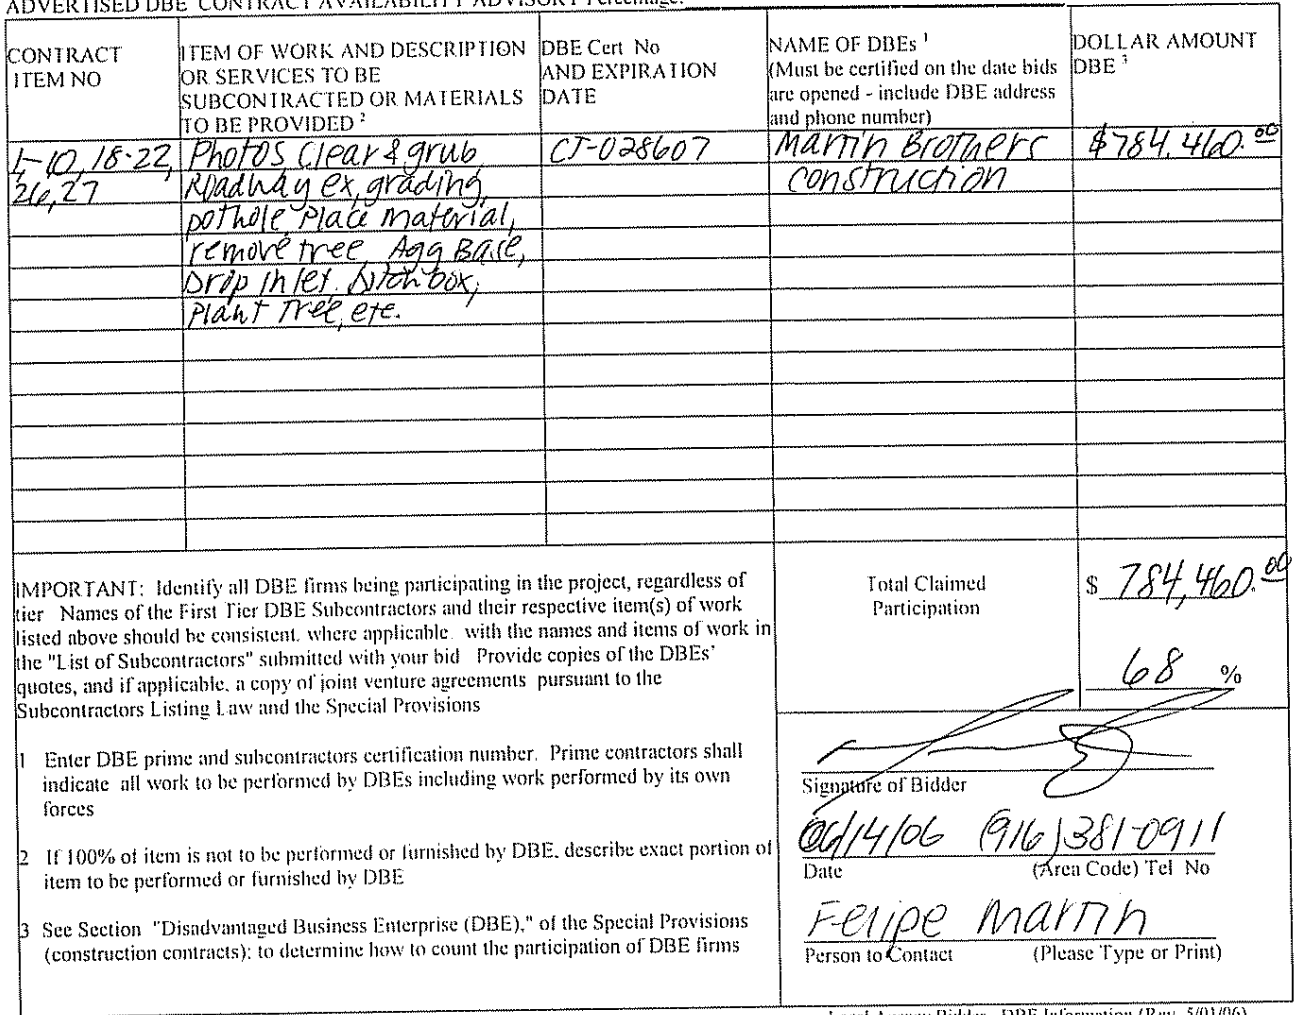 ADVERTISED DBE CONTRACT AVAILABILITY ADVISORY Percentage:
CONTRACT
ITEM NO
ITEM OF WORK AND DESCRIPTION
OR SERVICES TO BE
SUBCONTRACTED OR MATERIALS
TO BE PROVIDED 2
DBE Cert No
AND EXPIRATION
DATE
NAME OF DBEs 1
(Must be certified on the date bids
are opened - include DBE address
and phone number)
DOLLAR AMOUNT
DBE 3
1-10, 18-22,
26, 27
Photos Clear & grub
Roadway ex, grading,
pothole, Place material,
remove tree, Agg Base,
Drop inlet, Ditch box,
Plant Tree, etc.
CT-028607
Martin Brothers
construction
$784,460.00
IMPORTANT: Identify all DBE firms being participating in the project, regardless of
tier Names of the First Tier DBE Subcontractors and their respective item(s) of work
listed above should be consistent. where applicable. with the names and items of work in
the "List of Subcontractors" submitted with your bid Provide copies of the DBEs'
quotes, and if applicable. a copy of joint venture agreements pursuant to the
Subcontractors Listing Law and the Special Provisions
1 Enter DBE prime and subcontractors certification number. Prime contractors shall
indicate all work to be performed by DBEs including work performed by its own
forces
2 If 100% of item is not to be performed or furnished by DBE. describe exact portion of
item to be performed or furnished by DBE
3 See Section "Disadvantaged Business Enterprise (DBE)," of the Special Provisions
(construction contracts); to determine how to count the participation of DBE firms
Total Claimed
Participation
$ 784,460.00
68 %
Signature of Bidder
06/14/06 (916) 381-0911
Date (Area Code) Tel No
Felipe Martin
Person to Contact (Please Type or Print)
Local Agency Bidder - DBE Information (Rev. 5/01/06)